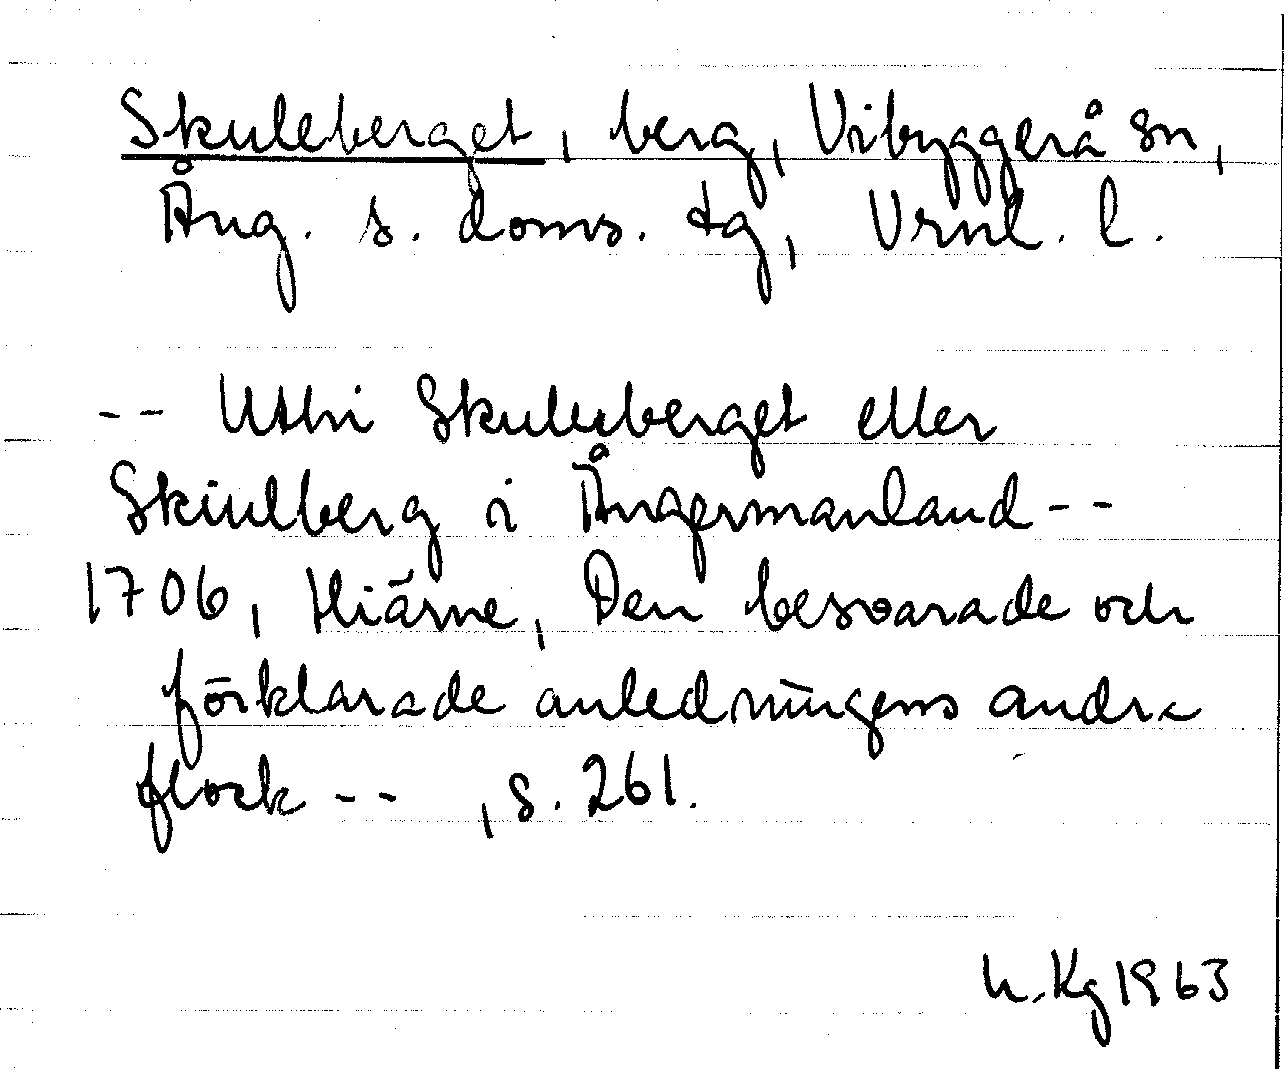 Skuleberget, berg, Vibyggerå sn,
Ång. s. doms. tg, Vrnl. l.
-- Uthi Skulesberget eller
Skiulberg i Ångermanland --
1706, Hiärne, Den besvarade och
förklarade anledningens andra
flock -- , s. 261.
h. Kg 1963